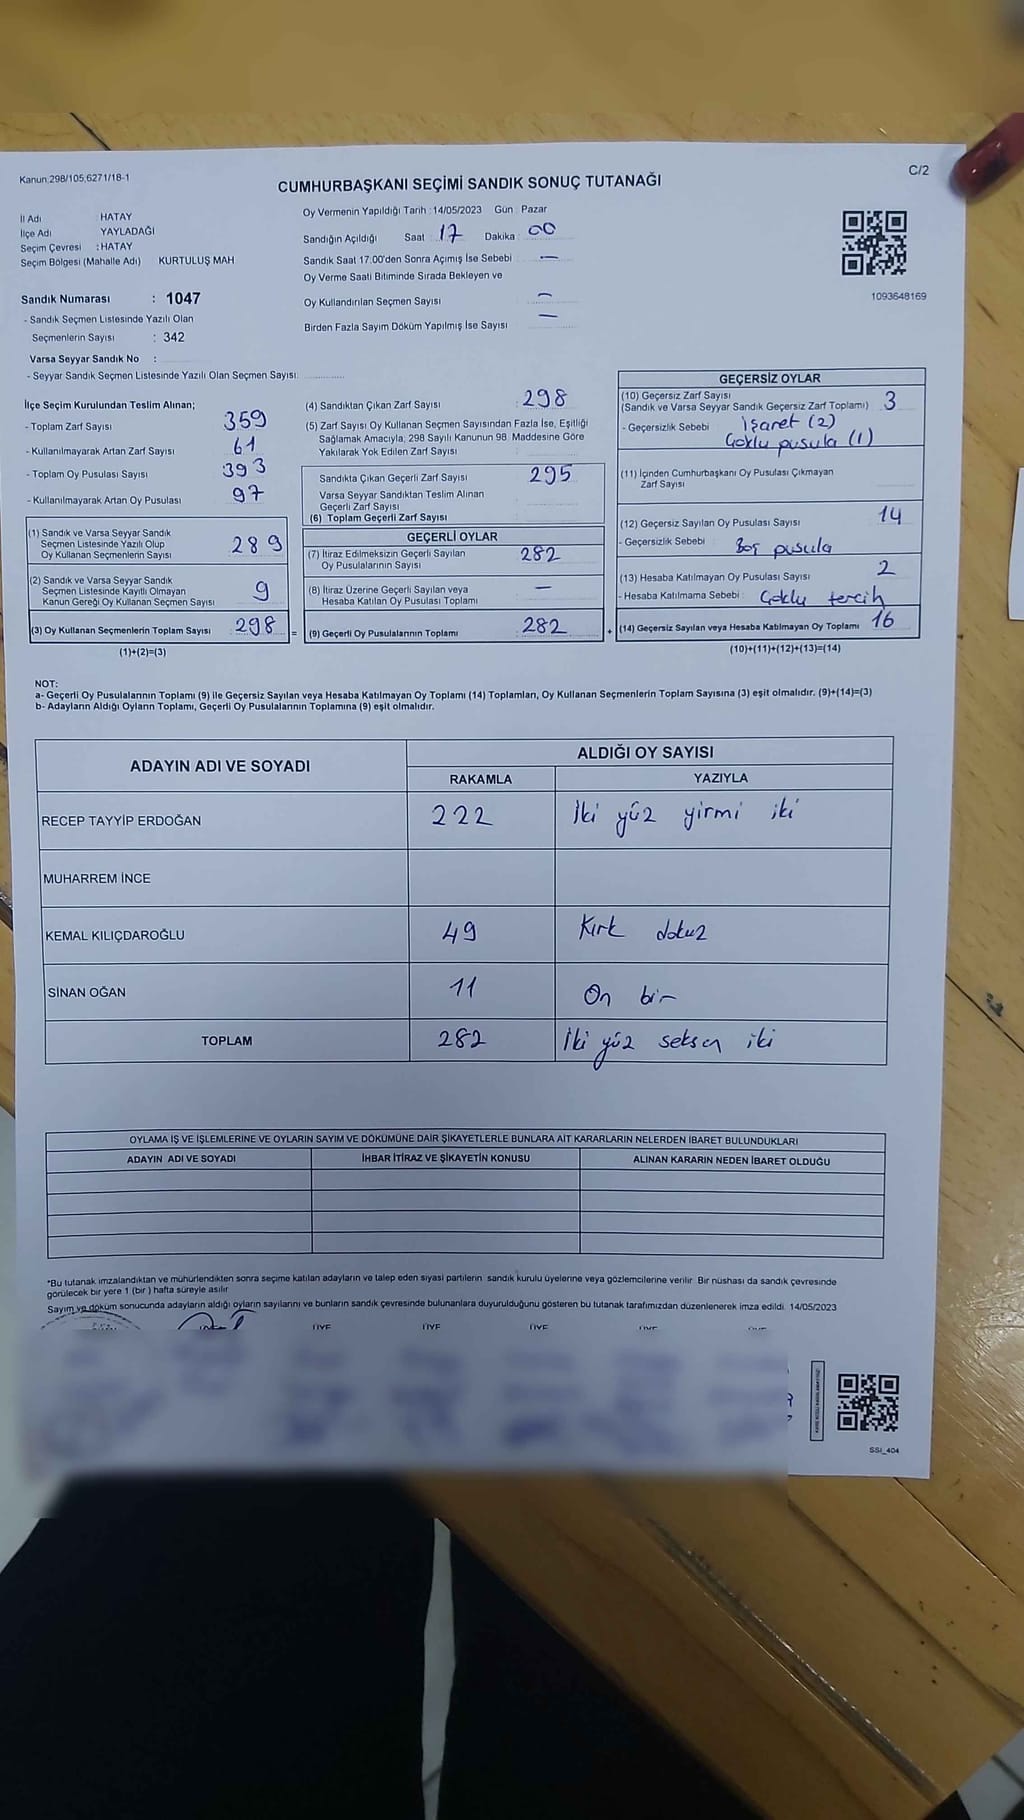 Kanun:298/105,6271/18-1
C/2
CUMHURBAŞKANI SEÇİMİ SANDIK SONUÇ TUTANAĞI
İl Adı : HATAY
İlçe Adı : YAYLADAĞI
Seçim Çevresi : HATAY
Seçim Bölgesi (Mahalle Adı) KURTULUŞ MAH
Sandık Numarası : 1047
- Sandık Seçmen Listesinde Yazılı Olan
Seçmenlerin Sayısı : 342
Varsa Seyyar Sandık No :
- Seyyar Sandık Seçmen Listesinde Yazılı Olan Seçmen Sayısı:
Oy Vermenin Yapıldığı Tarih : 14/05/2023 Gün : Pazar
Sandığın Açıldığı Saat : 17 Dakika : 00
Sandık Saat 17:00'den Sonra Açımış İse Sebebi : —
Oy Verme Saati Bitiminde Sırada Bekleyen ve
Oy Kullandırılan Seçmen Sayısı : —
Birden Fazla Sayım Döküm Yapılmış İse Sayısı : —
1093648169
İlçe Seçim Kurulundan Teslim Alınan;
- Toplam Zarf Sayısı 359
- Kullanılmayarak Artan Zarf Sayısı 61
- Toplam Oy Pusulası Sayısı 393
- Kullanılmayarak Artan Oy Pusulası 97
(1) Sandık ve Varsa Seyyar Sandık
Seçmen Listesinde Yazılı Olup
Oy Kullanan Seçmenlerin Sayısı 289
(2) Sandık ve Varsa Seyyar Sandık
Seçmen Listesinde Kayıtlı Olmayan
Kanun Gereği Oy Kullanan Seçmen Sayısı 9
(3) Oy Kullanan Seçmenlerin Toplam Sayısı 298 =
(1)+(2)=(3)
(4) Sandıktan Çıkan Zarf Sayısı : 298
(5) Zarf Sayısı Oy Kullanan Seçmen Sayısından Fazla İse, Eşitliği
Sağlamak Amacıyla, 298 Sayılı Kanunun 98. Maddesine Göre
Yakılarak Yok Edilen Zarf Sayısı :
Sandıkta Çıkan Geçerli Zarf Sayısı : 295
Varsa Seyyar Sandıktan Teslim Alınan
Geçerli Zarf Sayısı :
(6) Toplam Geçerli Zarf Sayısı :
GEÇERLİ OYLAR
(7) İtiraz Edilmeksizin Geçerli Sayılan
Oy Pusulalarının Sayısı : 282
(8) İtiraz Üzerine Geçerli Sayılan veya
Hesaba Katılan Oy Pusulası Toplamı : —
(9) Geçerli Oy Pusulalarının Toplamı : 282 +
GEÇERSİZ OYLAR
(10) Geçersiz Zarf Sayısı
(Sandık ve Varsa Seyyar Sandık Geçersiz Zarf Toplamı) 3
- Geçersizlik Sebebi : İşaret (2)
Çoklu pusula (1)
(11) İçinden Cumhurbaşkanı Oy Pusulası Çıkmayan
Zarf Sayısı
(12) Geçersiz Sayılan Oy Pusulası Sayısı 14
- Geçersizlik Sebebi : Boş pusula
(13) Hesaba Katılmayan Oy Pusulası Sayısı 2
- Hesaba Katılmama Sebebi : Çoklu tercih
(14) Geçersiz Sayılan veya Hesaba Katılmayan Oy Toplamı 16
(10)+(11)+(12)+(13)=(14)
NOT:
a- Geçerli Oy Pusulalarının Toplamı (9) ile Geçersiz Sayılan veya Hesaba Katılmayan Oy Toplamı (14) Toplamları, Oy Kullanan Seçmenlerin Toplam Sayısına (3) eşit olmalıdır. (9)+(14)=(3)
b- Adayların Aldığı Oyların Toplamı, Geçerli Oy Pusulalarının Toplamına (9) eşit olmalıdır.
ADAYIN ADI VE SOYADI
ALDIĞI OY SAYISI
RAKAMLA YAZIYLA
RECEP TAYYİP ERDOĞAN 222 İki yüz yirmi iki
MUHARREM İNCE
KEMAL KILIÇDAROĞLU 49 Kırk dokuz
SİNAN OĞAN 11 On bir
TOPLAM 282 İki yüz seksen iki
OYLAMA İŞ VE İŞLEMLERİNE VE OYLARIN SAYIM VE DÖKÜMÜNE DAİR ŞİKAYETLERLE BUNLARA AİT KARARLARIN NELERDEN İBARET BULUNDUKLARI
ADAYIN ADI VE SOYADI İHBAR İTİRAZ VE ŞİKAYETİN KONUSU ALINAN KARARIN NEDEN İBARET OLDUĞU
*Bu tutanak imzalandıktan ve mühürlendikten sonra seçime katılan adayların ve talep eden siyasi partilerin sandık kurulu üyelerine veya gözlemcilerine verilir. Bir nüshası da sandık çevresinde
görülecek bir yere 1 (bir ) hafta süreyle asılır
Sayım ve döküm sonucunda adayların aldığı oyların sayılarını ve bunların sandık çevresinde bulunanlara duyurulduğunu gösteren bu tutanak tarafımızdan düzenlenerek imza edildi. 14/05/2023
ÜYE ÜYE ÜYE ÜYE
SSI_404